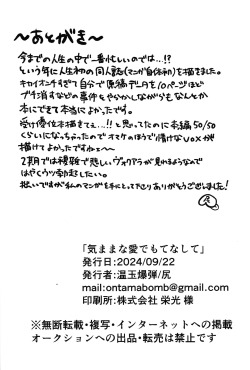 ～あとがき～
今までの人生の中で一番忙しいのでは…!?
という年に人生初の同人誌(マンガ自体初)を描きました。
キャイオンすぎて自分で原稿データを10ページほど
ブチ消すなどの事件をやらかしながらもなんとか
本にできて本当によかったです。
受け優位本描きてえ…!!と思ってたのに本編50/50
くらいになっちゃったのでオマケのほうで情けないvoxが
描けてよかったですねぇ〜
2期では複雑で悲しいヴォクアラが見れるようなんで
はやくウッ勃起したい。
拙いですが私のマンガを手にとって下さりありがとうございました!
「気ままな愛でもてなして」
発行日:2024/09/22
発行者:温玉爆弾/尻
mail:ontamabomb@gmail.com
印刷所:株式会社 栄光 様
※無断転載・複写・インターネットへの掲載
オークションへの出品・転売は禁止です